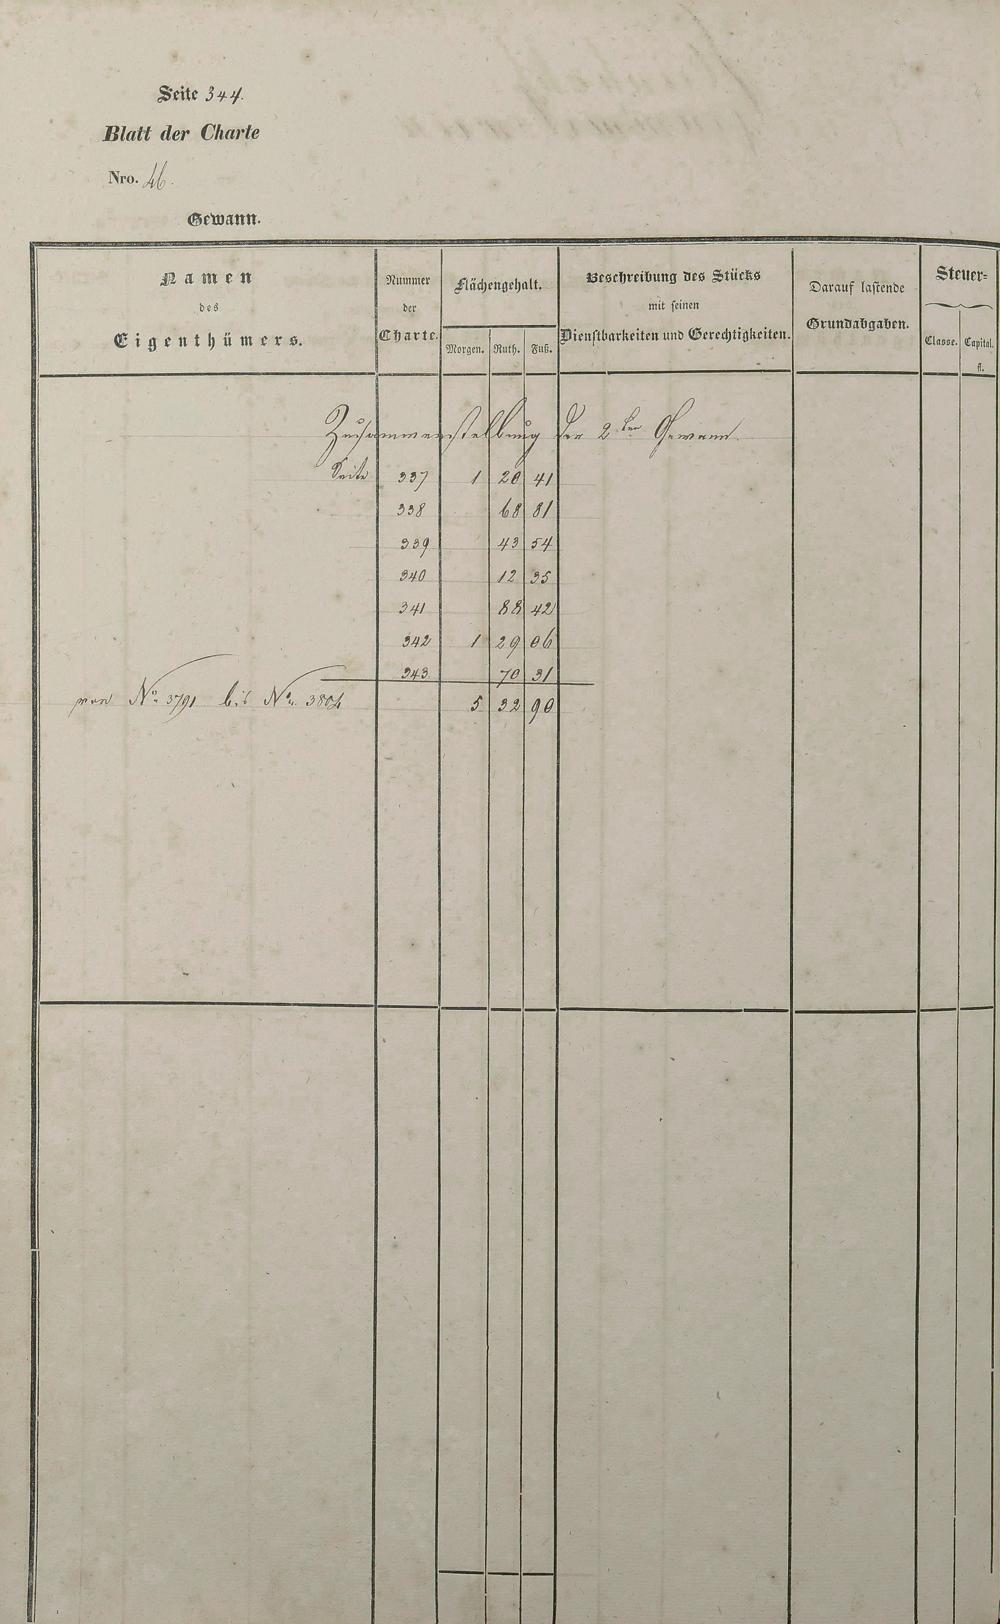 Seite 344.
Blatt der Charte
Nro. 46.
Gewann.
Namen
des
Eigenthümers.
Nummer
der
Charte.
Flächengehalt.
Morgen. Ruth. Fuß.
Beschreibung des Stücks
mit seinen
Dienstbarkeiten und Gerechtigkeiten.
Darauf lastende
Grundabgaben.
Steuer=
Classe. Capital.
fl.
Zusammenstellung der 2ten Gewann.
Seite 337 1 20 41
338 68 81
339 43 54
340 12 35
341 88 42
342 1 29 06
343 70 31
von No. 3791 bis No. 3804 5 32 90